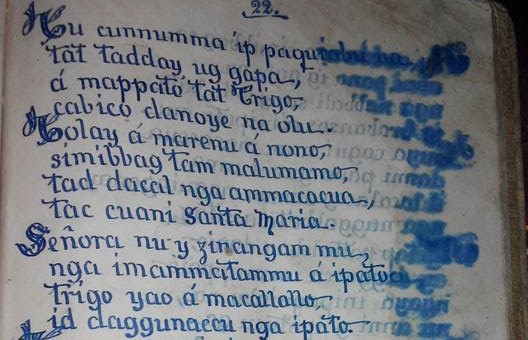 22.
Nu cunnumma ip paguiralni na,
tat tadday ug gapa,
á mappató tat trigo,
cabicó danoye na olu.
Nolay á marenu á nono,
simibbag tam malumamo,
tad dacal nga ammacacua,
tac cuani Santa Maria.
Señora nu y zinangam mu,
nga imammatammu á ipatocu
trigo yao á macallallo,
id daggunaccu nga ipato.